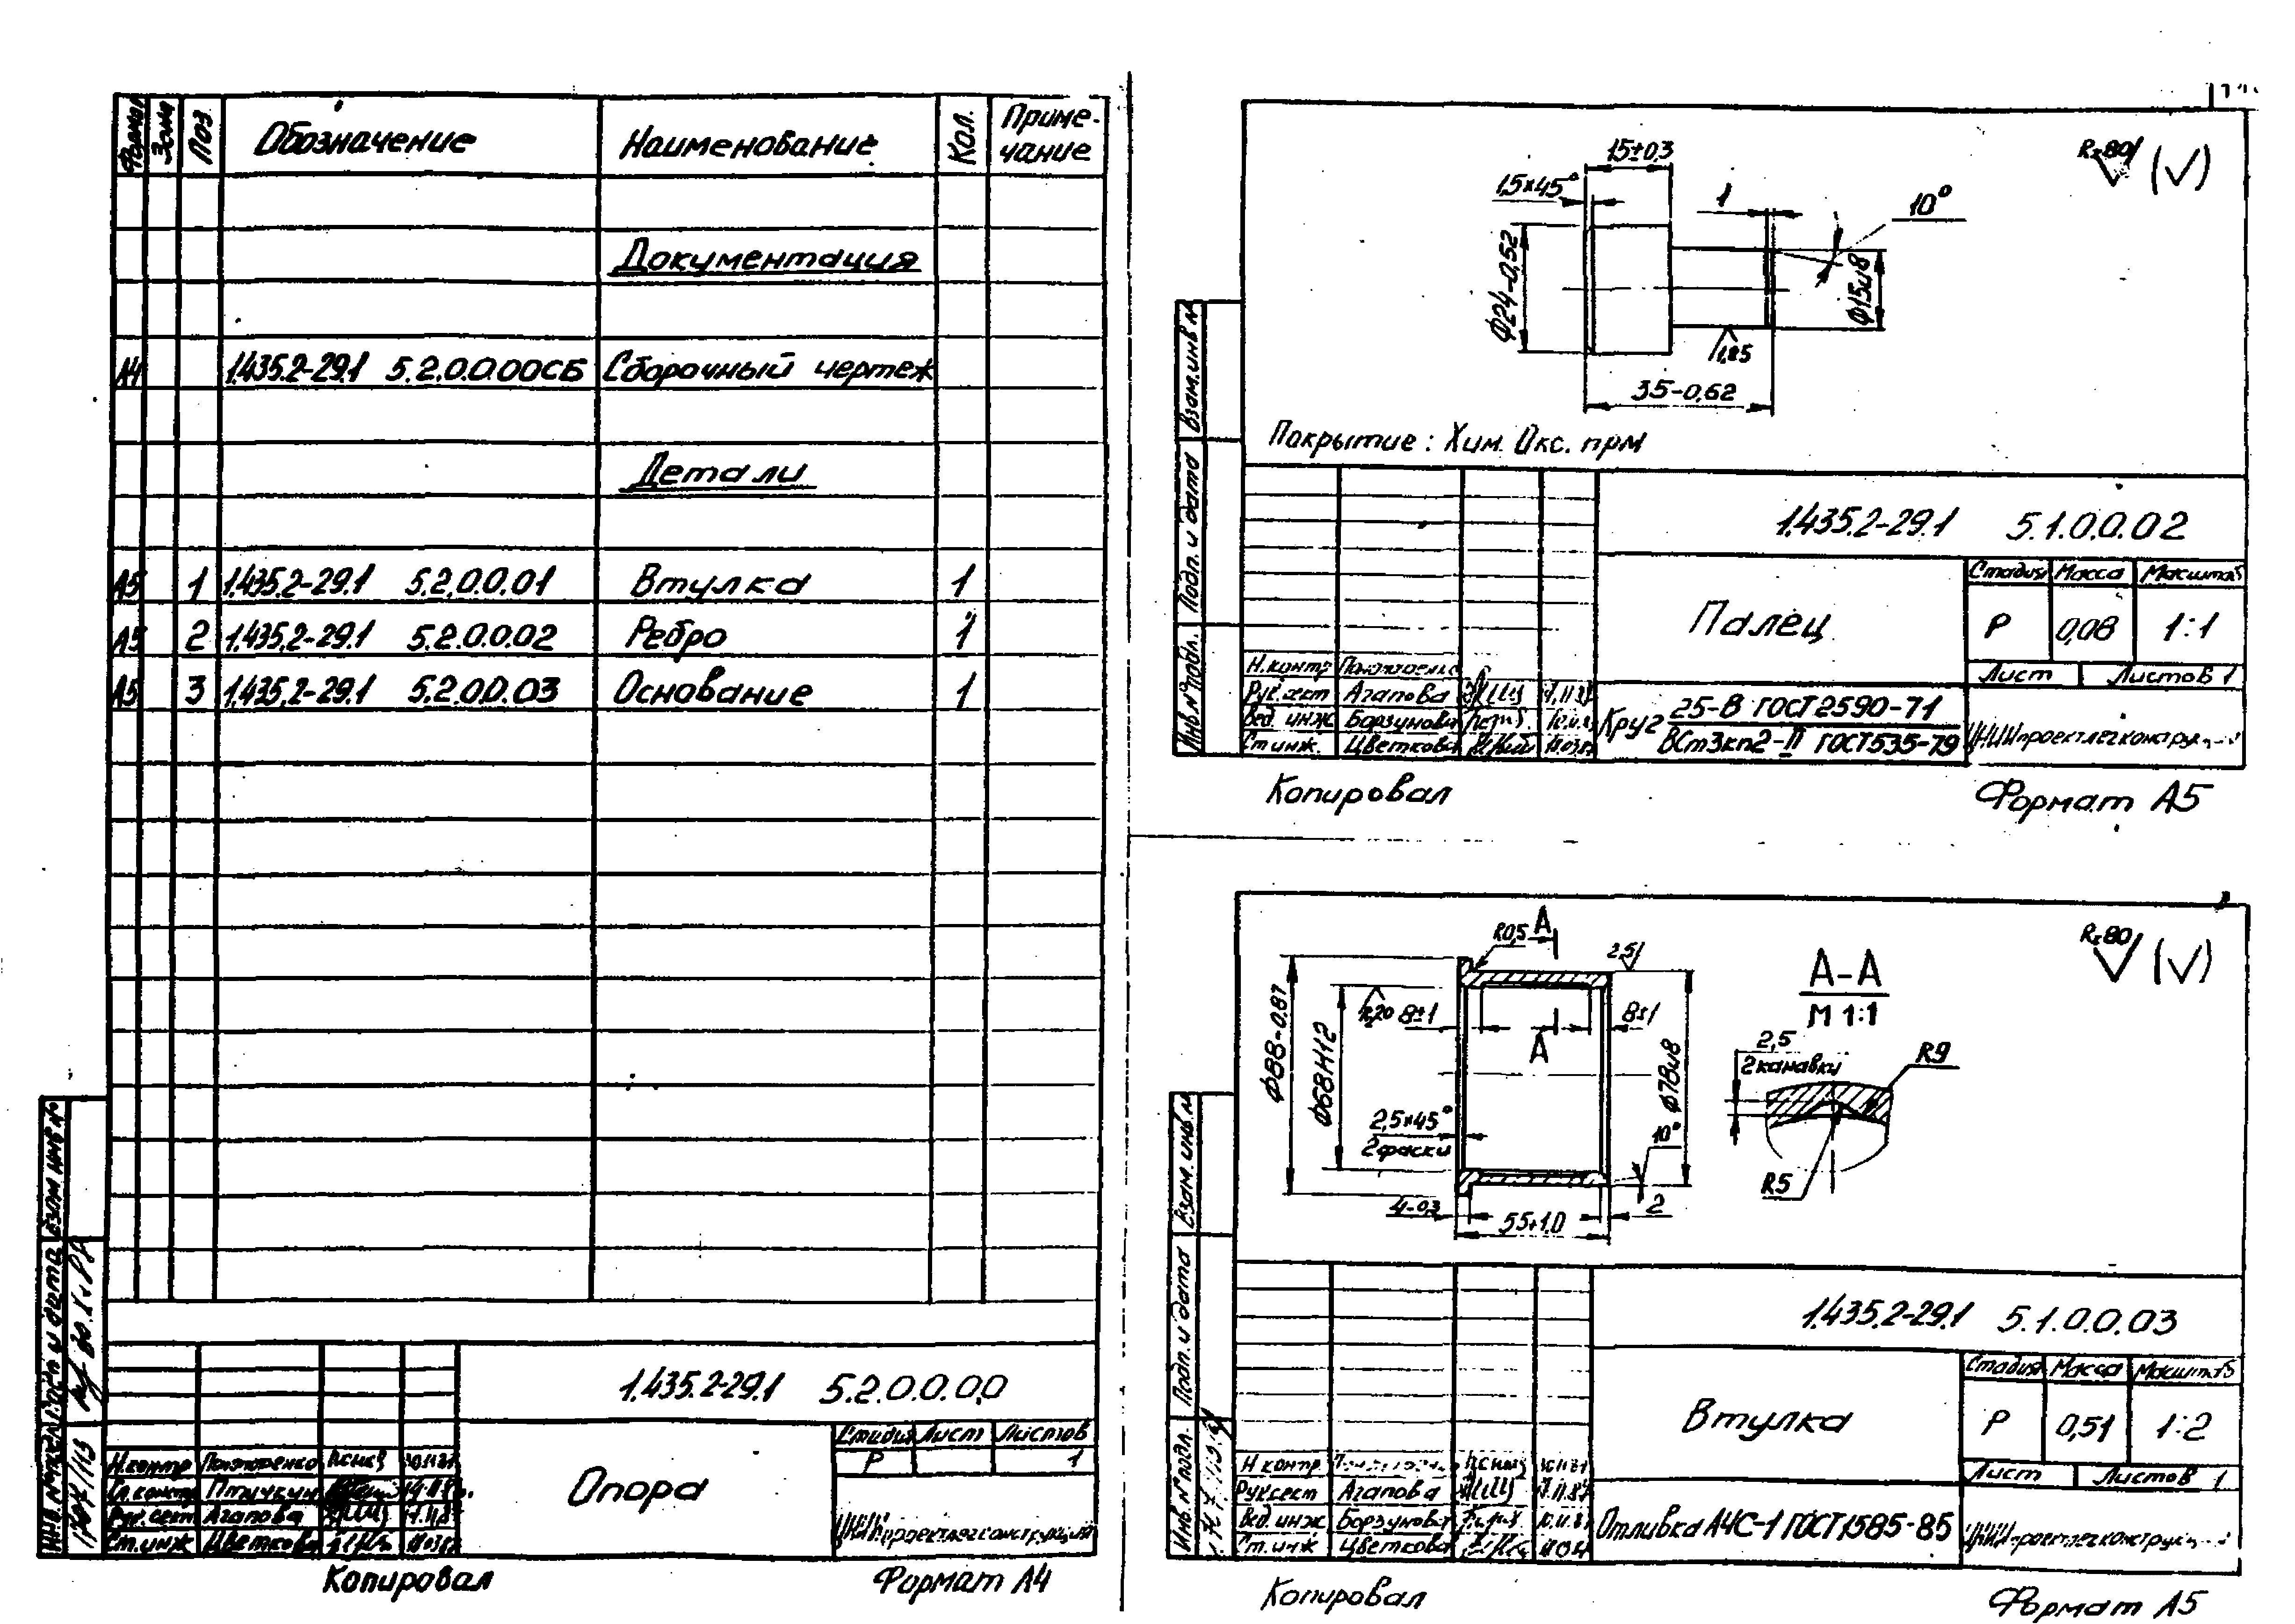 Формат Зона Поз. Обозначение Наименование Кол. Приме-
чание
Документация
А4 1.435.2-29.1 5.2.0.0.00СБ Сборочный чертеж
Детали
А5 1 1.435.2-29.1 5.2.0.0.01 Втулка 1
А5 2 1.435.2-29.1 5.2.0.0.02 Ребро 1
А5 3 1.435.2-29.1 5.2.0.0.03 Основание 1
Взам. инв №
Подп. и дата
Инв. № подл.
1.435.2-29.1 5.2.0.0.00
Опора
Стадия Лист Листов
Р 1
Н.контр
Гл.констр Птичкин
Рук.сект Агапова
Ст.инж Цветкова
ЦНИИпроектлегконструкция
Копировал Формат А4
Rz80 (√)
15±0,3
1,5×45°
1
10°
Ф24-0,52
Ф15и8
1,25
35-0,62
Покрытие: Хим. Окс. прм
Взам. инв №
Подп. и дата
Инв. № подл.
1.435.2-29.1 5.1.0.0.02
Палец
Стадия Масса Масштаб
Р 0,08 1:1
Лист Листов 1
Н.контр
Рук.сект Агапова
Вед. инж Борзунова
Ст инж. Цветкова
Круг 25-В ГОСТ 2590-71
ВСт3кп2-II ГОСТ 535-79
Копировал Формат А5
Rz80 (√)
R0,5 А
2,5
А-А
М 1:1
Rz20 8±1 8±1
А
Ф88-0,87
Ф68Н12
Ф78и8
2,5×45°
2 фаски
10°
4-0,3
55±1,0
2
2,5
2 канавки
R9
R5
Взам. инв №
Подп. и дата
Инв. № подл.
1.435.2-29.1 5.1.0.0.03
Втулка
Стадия Масса Масштаб
Р 0,51 1:2
Лист Листов 1
Н контр
Рук.сект Агапова
Вед. инж Борзунова
Ст. инж Цветкова
Отливка АЧС-1 ГОСТ 1585-85
Копировал Формат А5